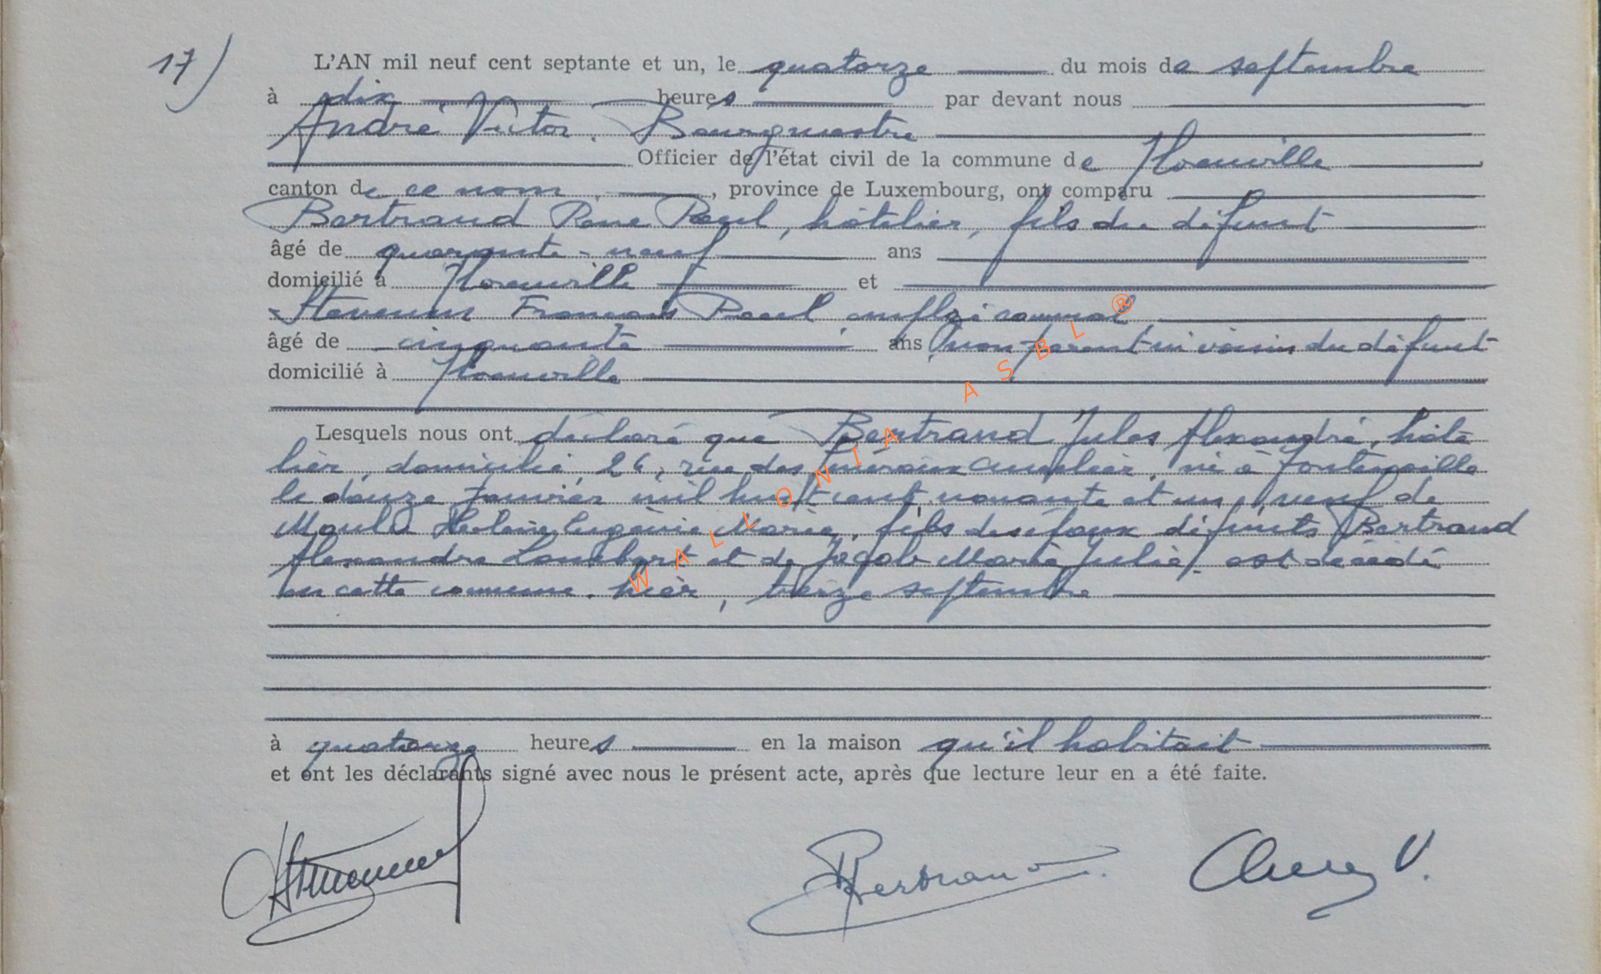 17)
L'AN mil neuf cent septante et un, le quatorze du mois de septembre
à dix heures par devant nous
André Victor, Bourgmestre
Officier de l'état civil de la commune de Florenville
canton de ce nom, province de Luxembourg, ont comparu
Bertrand René Paul, hôtelier, fils du défunt
âgé de quarante-neuf ans
domicilié à Florenville et
Stevenin François Paul employé communal
âgé de cinquante ans non parent ni voisin du défunt
domicilié à Florenville
Lesquels nous ont déclaré que Bertrand Jules Alexandre, hôte
lier, domicilié 26, rue des, né à Fontenoille
le douze janvier mil huit cent nonante et un, veuf de
Eugénie Marie, fils des époux défunts Bertrand
Alexandre Lambert et de Jacob Marie Julie, est décédé
en cette commune, hier, treize septembre
à quatorze heures en la maison qu'il habitait
et ont les déclarants signé avec nous le présent acte, après que lecture leur en a été faite.
Bertrand
WALLONIA ASBL ®